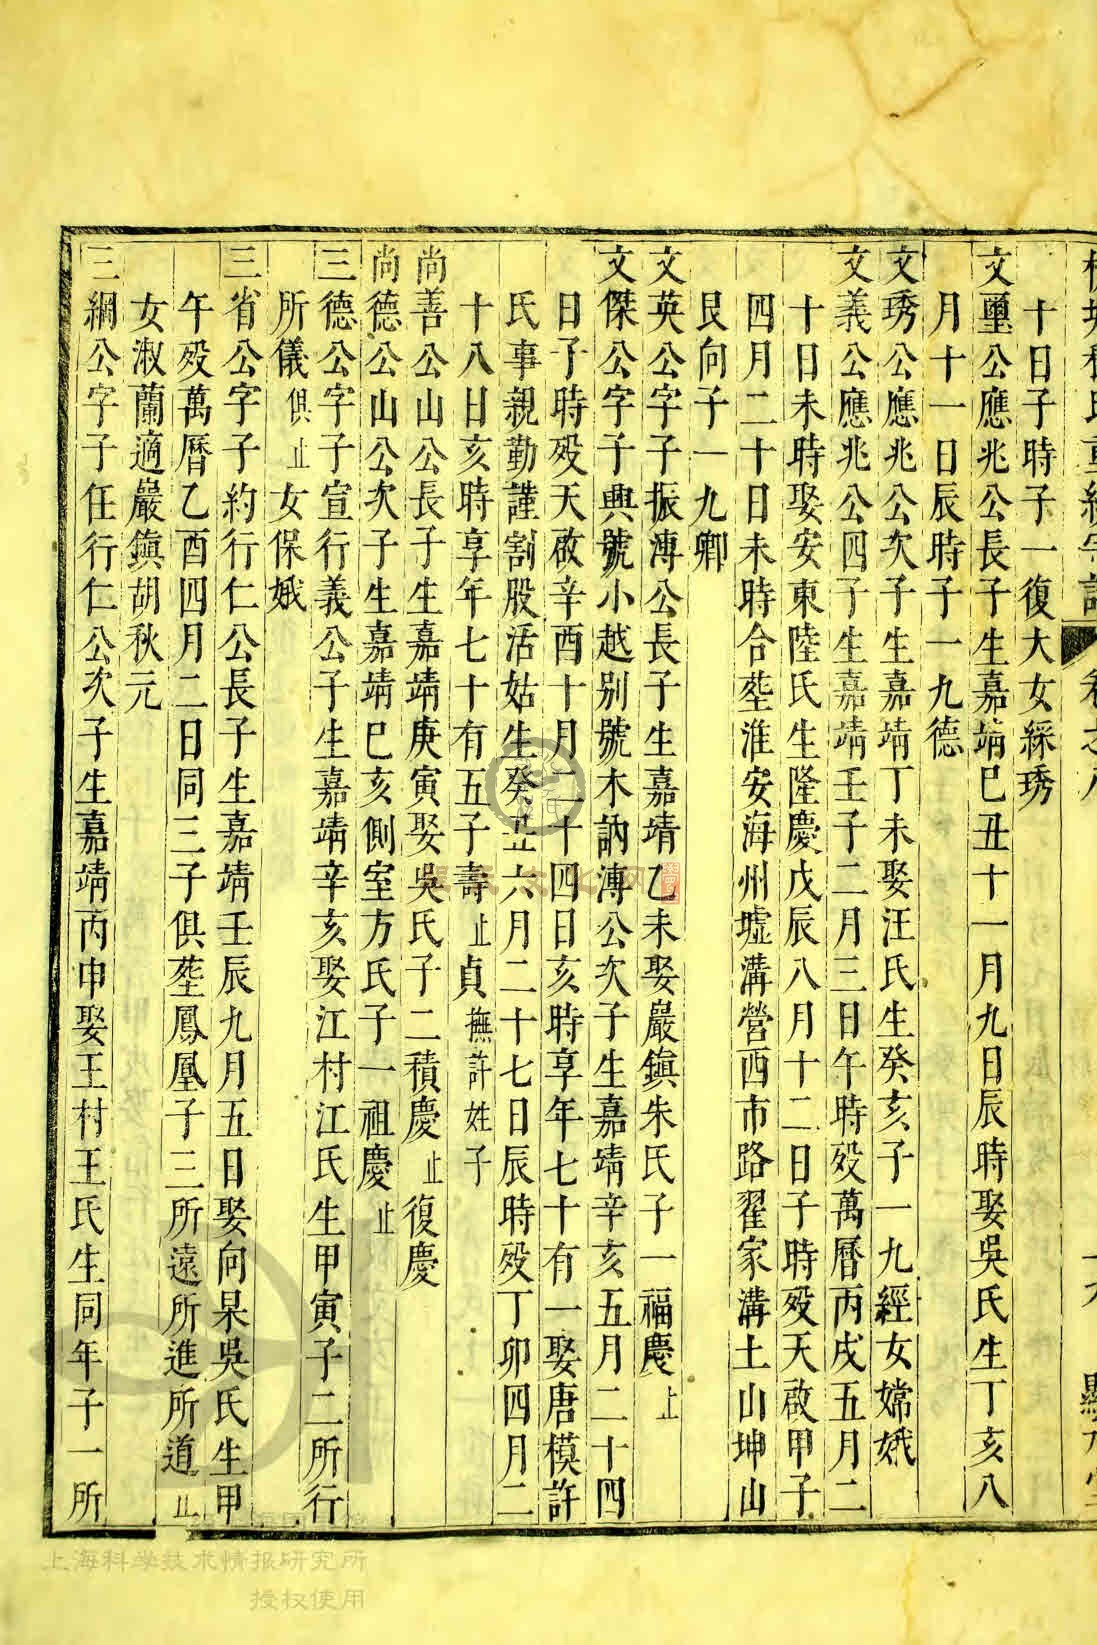 十日子時子一復大女綵琇
文璽公應兆公長子生嘉靖已丑十一月九日辰時娶吳氏生丁亥八
月十一日辰時子一九德
文琇公應兆公次子生嘉靖丁未娶汪氏生癸亥子一九經女嫦娥
文義公應兆公四子生嘉靖壬子二月三日午時歿萬曆丙戌五月二
十日未時娶安東陸氏生隆慶戊辰八月十二日子時歿天啟甲子
四月二十日未時合塟淮安海州墟溝營西市路翟家溝土山坤山
艮向子一九卿
文英公字子振漙公長子生嘉靖乙未娶巖鎭朱氏子一福慶止
文傑公字子興號小越别號木訥漙公次子生嘉靖辛亥五月二十四
日子時歿天啟辛酉十月二十四日亥時享年七十有一娶唐模許
氏事親勤謹割股活姑生癸丑六月二十七日辰時歿丁卯四月二
十八日亥時享年七十有五子壽止貞撫許姓子
尚善公山公長子生嘉靖庚寅娶吳氏子二積慶止復慶
尚德公山公次子生嘉靖已亥側室方氏子一祖慶止
三德公字子宣行義公子生嘉靖辛亥娶江村江氏生甲寅子二所行
所儀俱止女保娥
三省公字子約行仁公長子生嘉靖壬辰九月五日娶向杲吳氏生甲
午歿萬曆乙酉四月二日同三子俱塟鳳凰子三所遠所進所道止
女淑蘭適巖鎭胡秋元
三綱公字子任行仁公次子生嘉靖丙申娶王村王氏生同年子一所
上海科学技术情报研究所
授权使用